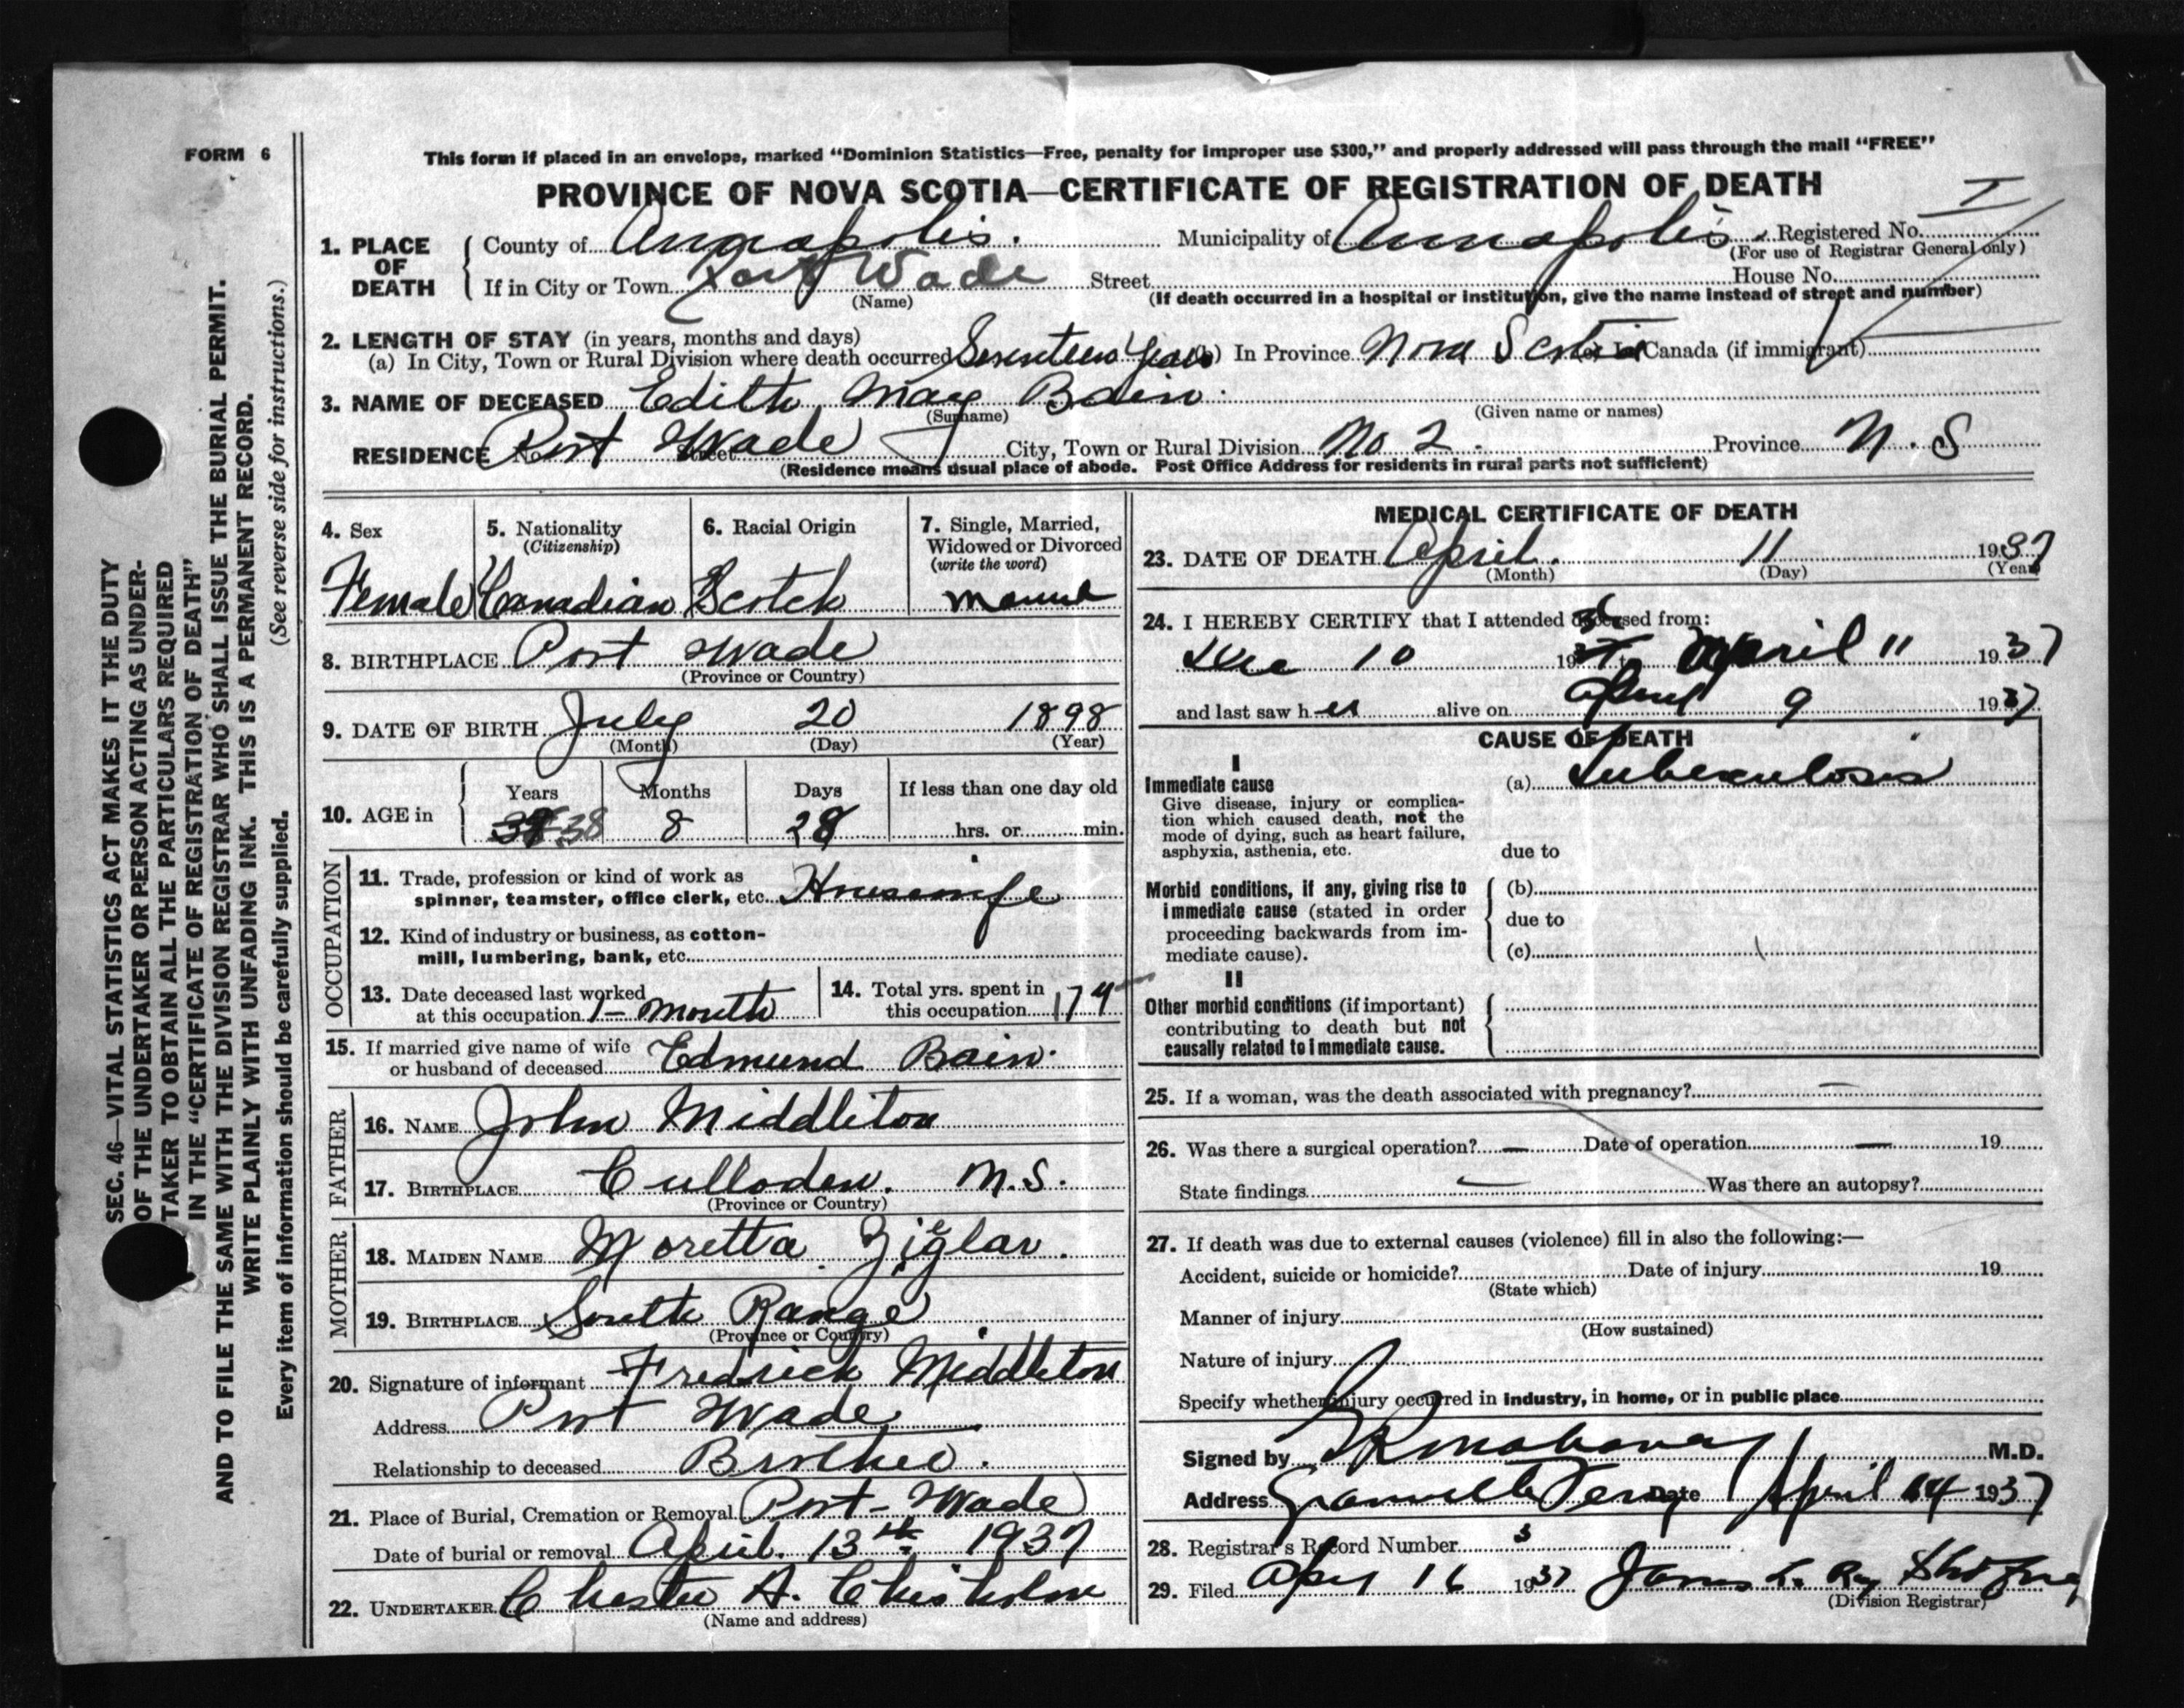 FORM 6
This form if placed in an envelope, marked "Dominion Statistics—Free, penalty for improper use $300," and properly addressed will pass through the mail "FREE"
PROVINCE OF NOVA SCOTIA—CERTIFICATE OF REGISTRATION OF DEATH
1. PLACE OF DEATH County of Annapolis. Municipality of Annapolis Registered No.
(For use of Registrar General only)
If in City or Town Port Wade Street House No.
(Name) (If death occurred in a hospital or institution, give the name instead of street and number)
2. LENGTH OF STAY (in years, months and days)
(a) In City, Town or Rural Division where death occurred Seventeen Years (b) In Province Nova Scotia (c) In Canada (if immigrant)
3. NAME OF DECEASED Edith May Bain
(Surname) (Given name or names)
RESIDENCE No. Port Wade Street City, Town or Rural Division No 2. Province N. S
(Residence means usual place of abode. Post Office Address for residents in rural parts not sufficient)
4. Sex
Female
5. Nationality
(Citizenship)
Canadian
6. Racial Origin
Scotch
7. Single, Married,
Widowed or Divorced
(write the word)
8. BIRTHPLACE Port Wade
(Province or Country)
9. DATE OF BIRTH July 20 1898
(Month) (Day) (Year)
10. AGE in Years Months Days If less than one day old
38 8 28 hrs. or min.
OCCUPATION
11. Trade, profession or kind of work as
spinner, teamster, office clerk, etc. Housewife
12. Kind of industry or business, as cotton-
mill, lumbering, bank, etc.
13. Date deceased last worked
at this occupation 1- month
14. Total yrs. spent in
this occupation 17 4
15. If married give name of wife
or husband of deceased Edmund Bain.
FATHER
16. NAME John Middleton
17. BIRTHPLACE Culloden. N.S.
(Province or Country)
MOTHER
18. MAIDEN NAME Moretta Ziglar.
19. BIRTHPLACE South Range
(Province or Country)
20. Signature of informant Fredrick Middleton
Address Port Wade
Relationship to deceased Brother.
21. Place of Burial, Cremation or Removal Port-Wade
Date of burial or removal April. 13th. 1937
22. UNDERTAKER Chester A. Chisholm
(Name and address)
MEDICAL CERTIFICATE OF DEATH
23. DATE OF DEATH April. 11 1937
(Month) (Day) (Year)
24. I HEREBY CERTIFY that I attended deceased from:
Dec 10 19 to April 11 1937
and last saw her alive on April 9 1937
CAUSE OF DEATH
I
Immediate cause (a) Tuberculosis
Give disease, injury or complica-
tion which caused death, not the
mode of dying, such as heart failure,
asphyxia, asthenia, etc. due to
Morbid conditions, if any, giving rise to (b)
immediate cause (stated in order due to
proceeding backwards from im-
mediate cause). (c)
II
Other morbid conditions (if important)
contributing to death but not
causally related to immediate cause.
25. If a woman, was the death associated with pregnancy? —
26. Was there a surgical operation? — Date of operation — 19
State findings — Was there an autopsy?
27. If death was due to external causes (violence) fill in also the following:—
Accident, suicide or homicide? Date of injury 19
(State which)
Manner of injury
(How sustained)
Nature of injury
Specify whether injury occurred in industry, in home, or in public place
Signed by M.D.
Address Granville Ferry Date April 14 1937
28. Registrar's Record Number 3
29. Filed Apr 16 1937
(Division Registrar)
SEC. 46—VITAL STATISTICS ACT MAKES IT THE DUTY
OF THE UNDERTAKER OR PERSON ACTING AS UNDER-
TAKER TO OBTAIN ALL THE PARTICULARS REQUIRED
IN THE "CERTIFICATE OF REGISTRATION OF DEATH"
AND TO FILE THE SAME WITH THE DIVISION REGISTRAR WHO SHALL ISSUE THE BURIAL PERMIT.
WRITE PLAINLY WITH UNFADING INK. THIS IS A PERMANENT RECORD.
Every item of information should be carefully supplied. (See reverse side for instructions.)